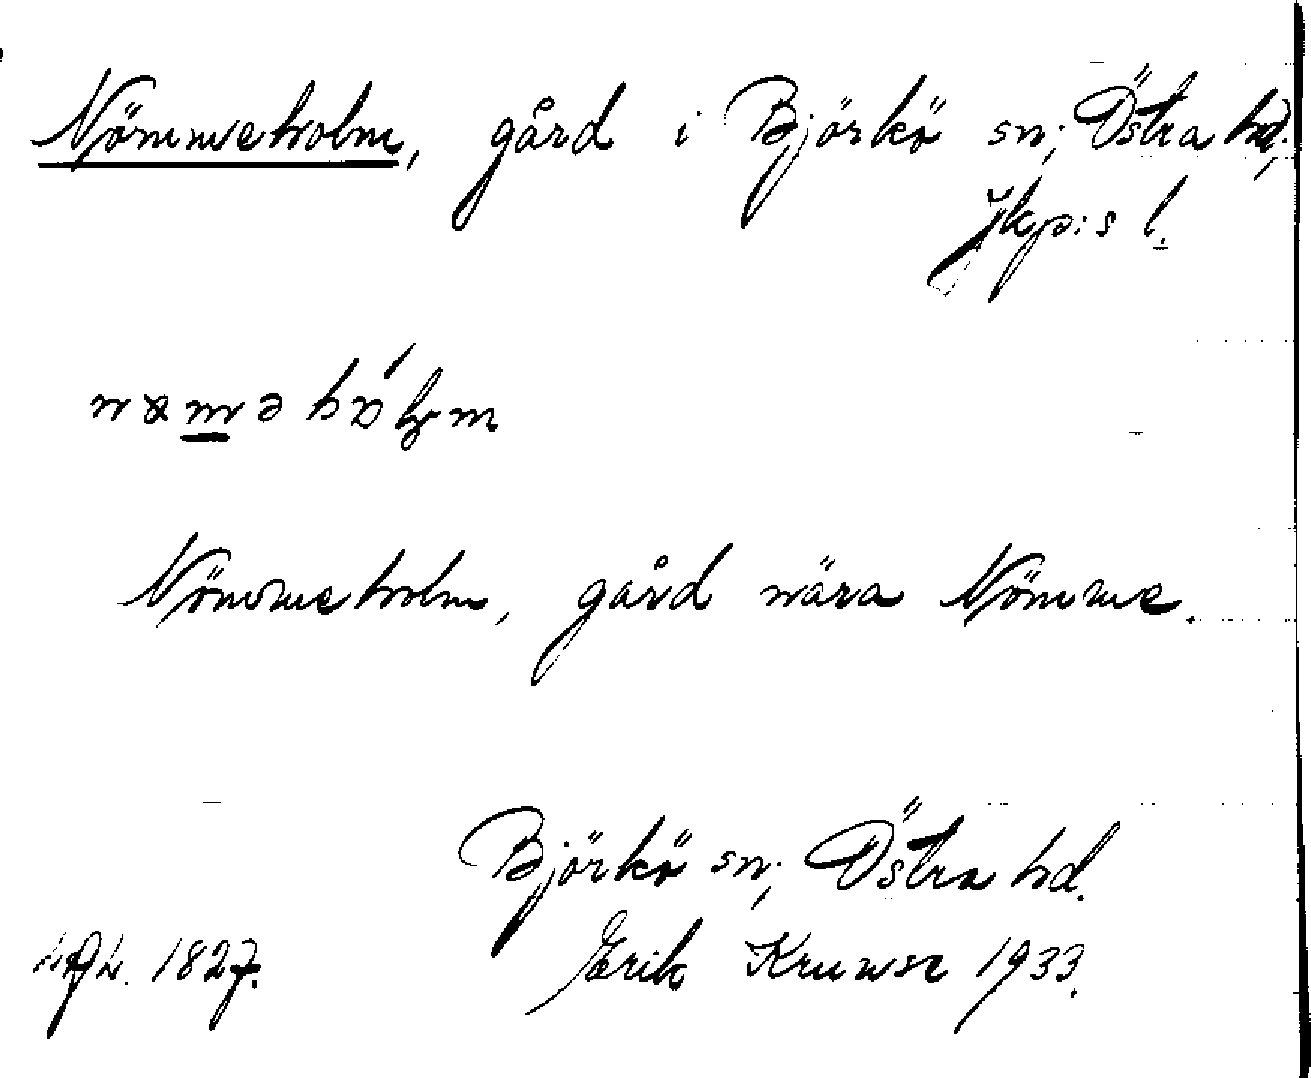 Nömmeholm, gård i Björkö sn; Östra hd,
Jkp:s l.
Nömmeholm, gård nära Nömme.
Björkö sn; Östra hd.
1827. Erik Kruuse 1933.